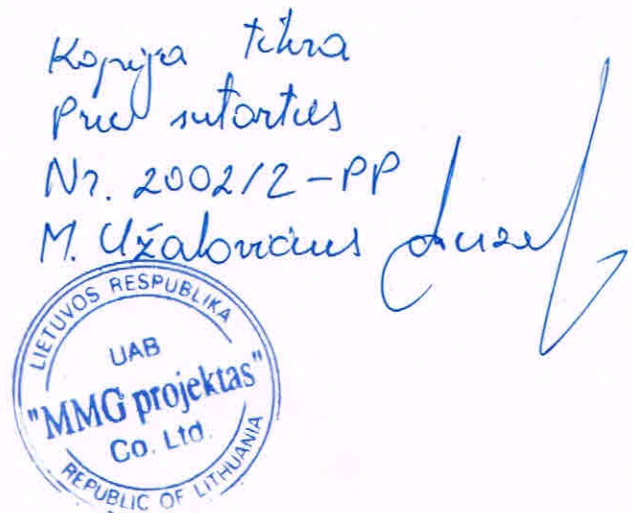 Kopija tikra
Prie sutarties
Nr. 2002/2-PP
M. Užalovicius
LIETUVOS RESPUBLIKA
UAB
"MMG projektas"
Co. Ltd.
REPUBLIC OF LITHUANIA